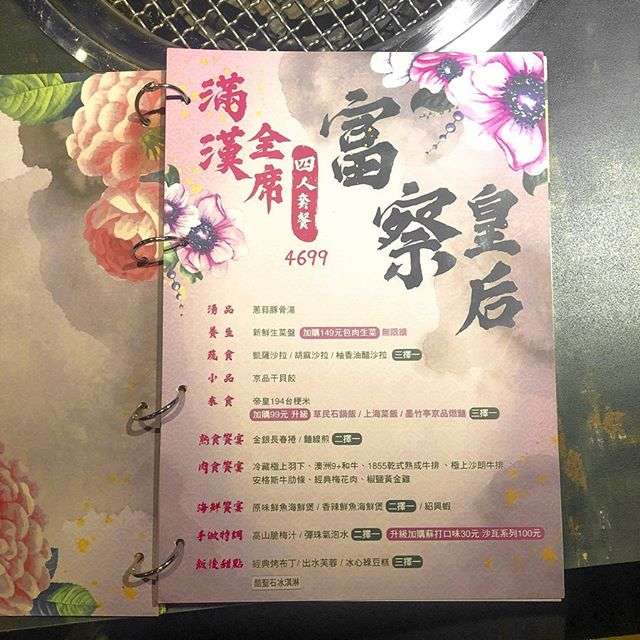 滿漢全席
四人套餐
4699
富察皇后
湯品 蔥蒜豚骨湯
養生 新鮮生菜盤 加購149元包肉生菜 無限續
蔬食 凱薩沙拉 / 胡麻沙拉 / 柚香油醋沙拉 三擇一
小品 京品干貝餃
衣食 帝皇194台梗米
加購99元 升級 草民石鍋飯 / 上海菜飯 / 墨竹亭京品燉麵 三擇一
熱食饗宴 金銀長春捲 / 麵線煎 二擇一
肉食饗宴 冷藏極上羽下、澳洲9+和牛、1855乾式熟成牛排 、極上沙朗牛排
安格斯牛肋條、經典梅花肉、椒鹽黃金雞
海鮮饗宴 原味鮮魚海鮮煲 / 香辣鮮魚海鮮煲 二擇一 / 紹興蝦
手做特調 高山脆梅汁 / 彈珠氣泡水 二擇一 升級加購蘇打口味30元 沙瓦系列100元
飯後甜點 經典烤布丁 / 出水芙蓉 / 冰心綠豆糕 三擇一
酷聖石冰淇淋